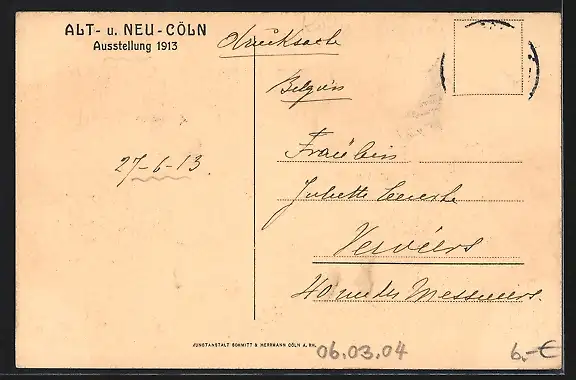 ALT- u. NEU-CÖLN
Ausstellung 1913
Drucksache
Belgien
27-6-13.
Fräulein
Juliette
Verviers
40 rue des Messieurs.
KUNSTANSTALT SCHMITT & HERRMANN CÖLN A. RH.
06.03.04
6,-€